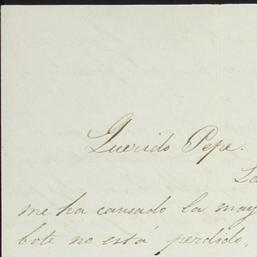 Querido Pepe.
La
me ha causado la may
bote no está perdido,